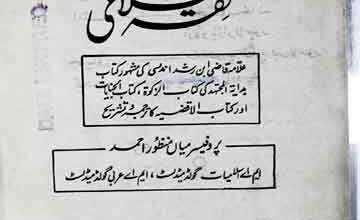 فقہ اسلامی
علامہ قاضی ابن رشد اندلسی کی مشہور کتاب
بدایۃ المجتہد کی کتاب الزکوٰۃ، کتاب الجنایات
اور کتاب الاقضیہ کا ترجمہ و تشریح
پروفیسر میاں منظور احمد
ایم اے اسلامیات گولڈ میڈلسٹ، ایم اے عربی گولڈ میڈلسٹ